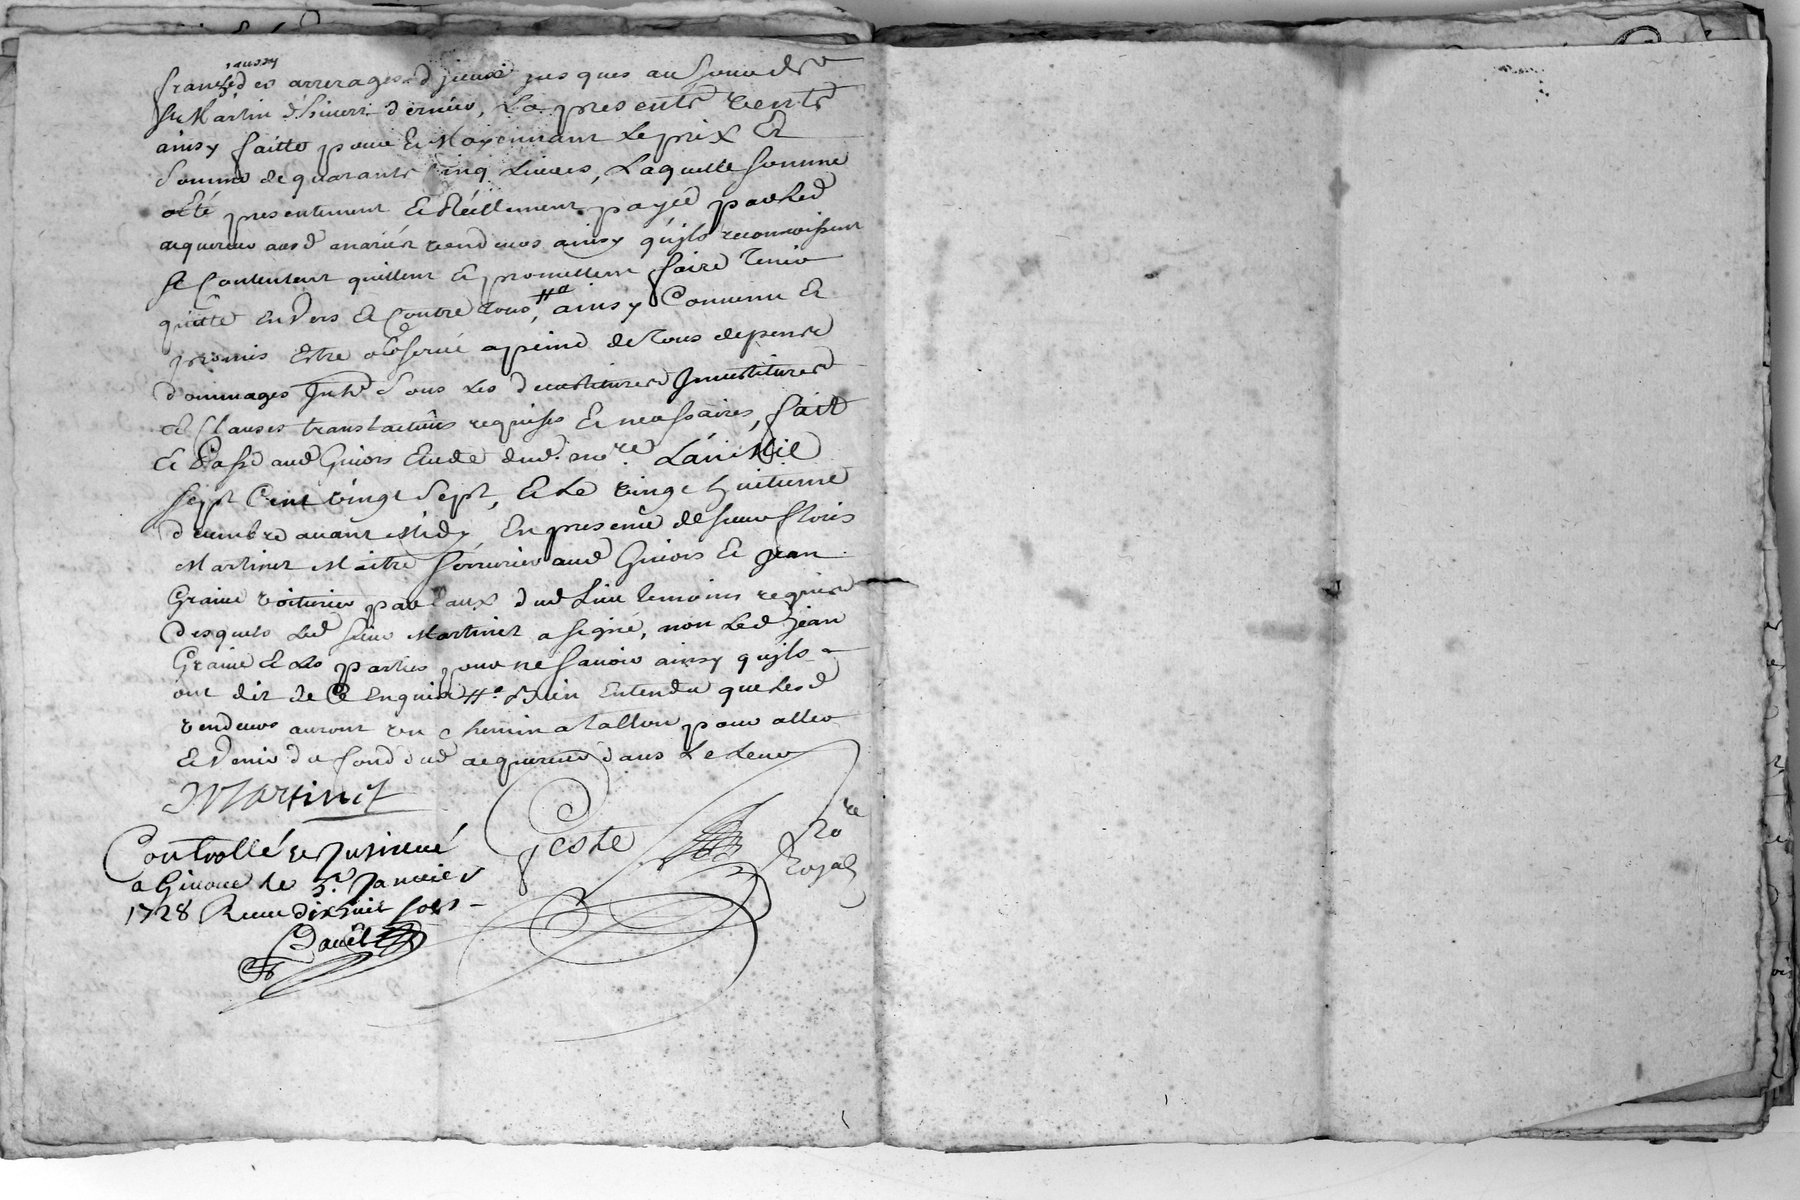 aussy
franche des arrerages d'jceux jusques au jour de
St Martin d'hiuert dernier, La presente vente
ainsy faitte pour et Moyennant Le prix Et
somme de quarante cinq Liures, Laquelle somme
a Eté presentement Et Réellement payée par Led
acquereur ausd mariés vendeurs ainsy qu'jls reconnoissent
se Contentent quittent Et promettent faire tenir
quitte Enuers Et Contre tous, # ainsy Conuenu Et
promis Estre obserué a peine de tous depens
dommages Jnts sous Les deuestitures Jnuestitures
et Clauses translatiues requises Et necessaires, fait
Et Passé aud Giuors Etude dud. nore. L'an Mil
sept Cent vingt sept, Et Le vingt huitieme
decembre auant Midy, En presence de sieur floris
Martinet Maitre serrurier aud Giuors Et Jean
Graine voiturier par Eaux dud Lieu temoins requis
Desquels Led sieur Martinet a signé, non Led Jean
Graine Et Les parties pour ne sauoir ainsy qu'jls
ont dit de Ce Enquis # Bien Entendu que Lesd
vendeurs auront vn chemin a tallon pour aller
Et venir du fond dud acquereur dans Le Leur
Martinet
Geste
Nore
Royal
Controllé et Jnsinué
a Giuors le 3e. Januier
1728 Receu dix huit sols